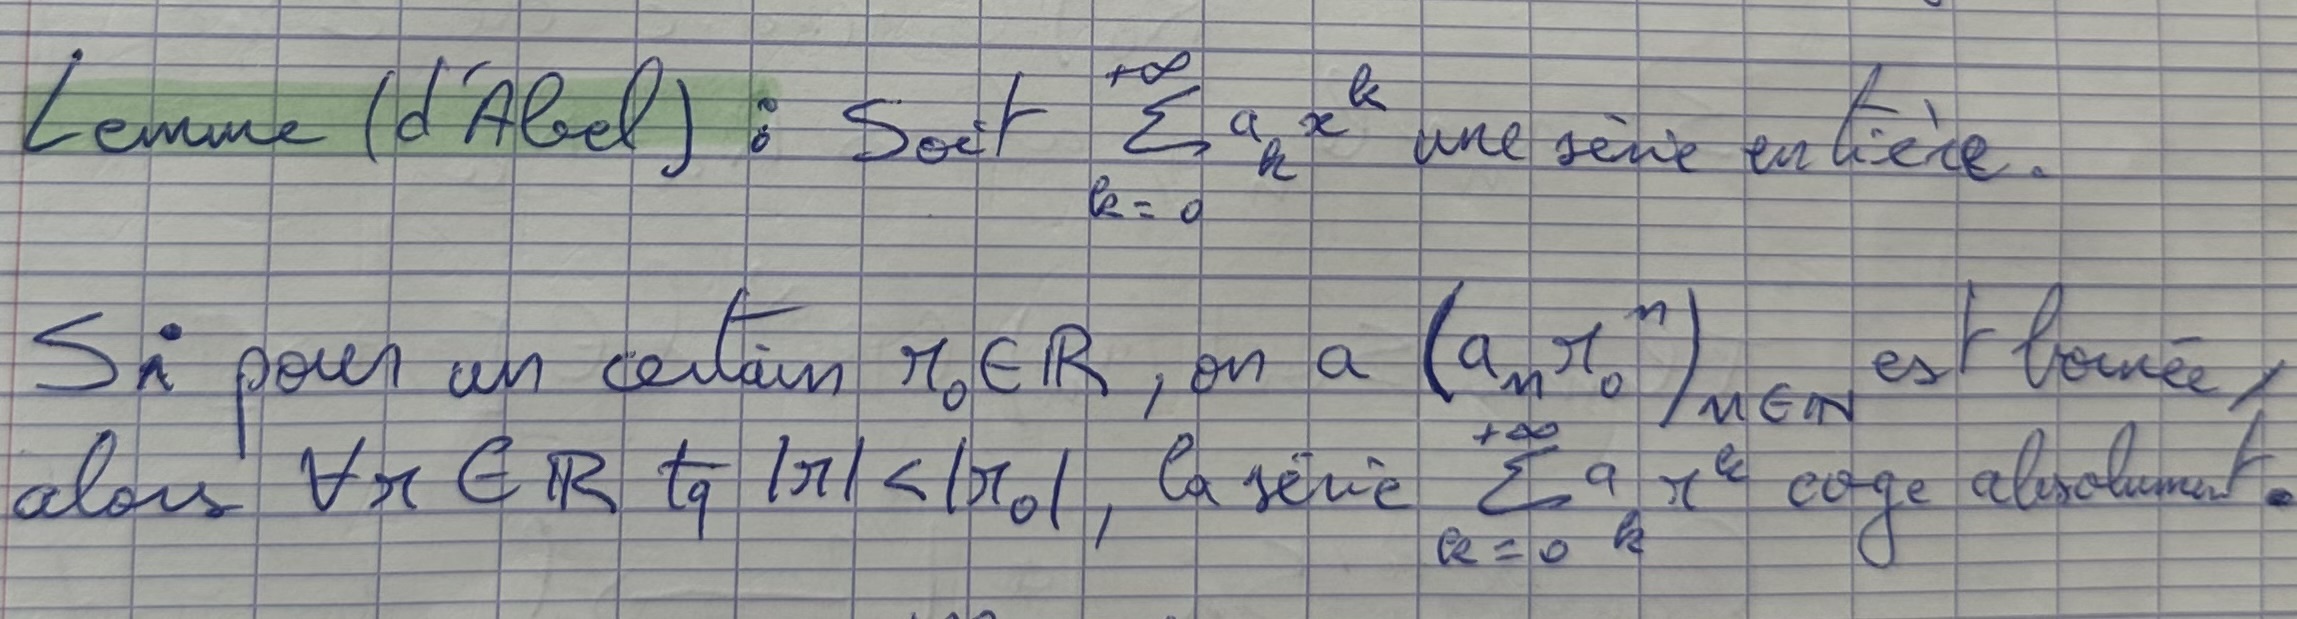 Lemme (d'Abel) : Soit $\sum_{k=0}^{+\infty} a_k x^k$ une série entière.
Si pour un certain $x_0 \in \mathbb{R}$, on a $(a_n x_0^n)_{n \in \mathbb{N}}$ est bornée,
alors $\forall x \in \mathbb{R}$ tq $|x| < |x_0|$, la série $\sum_{k=0}^{+\infty} a_k x^k$ cvge absolument.